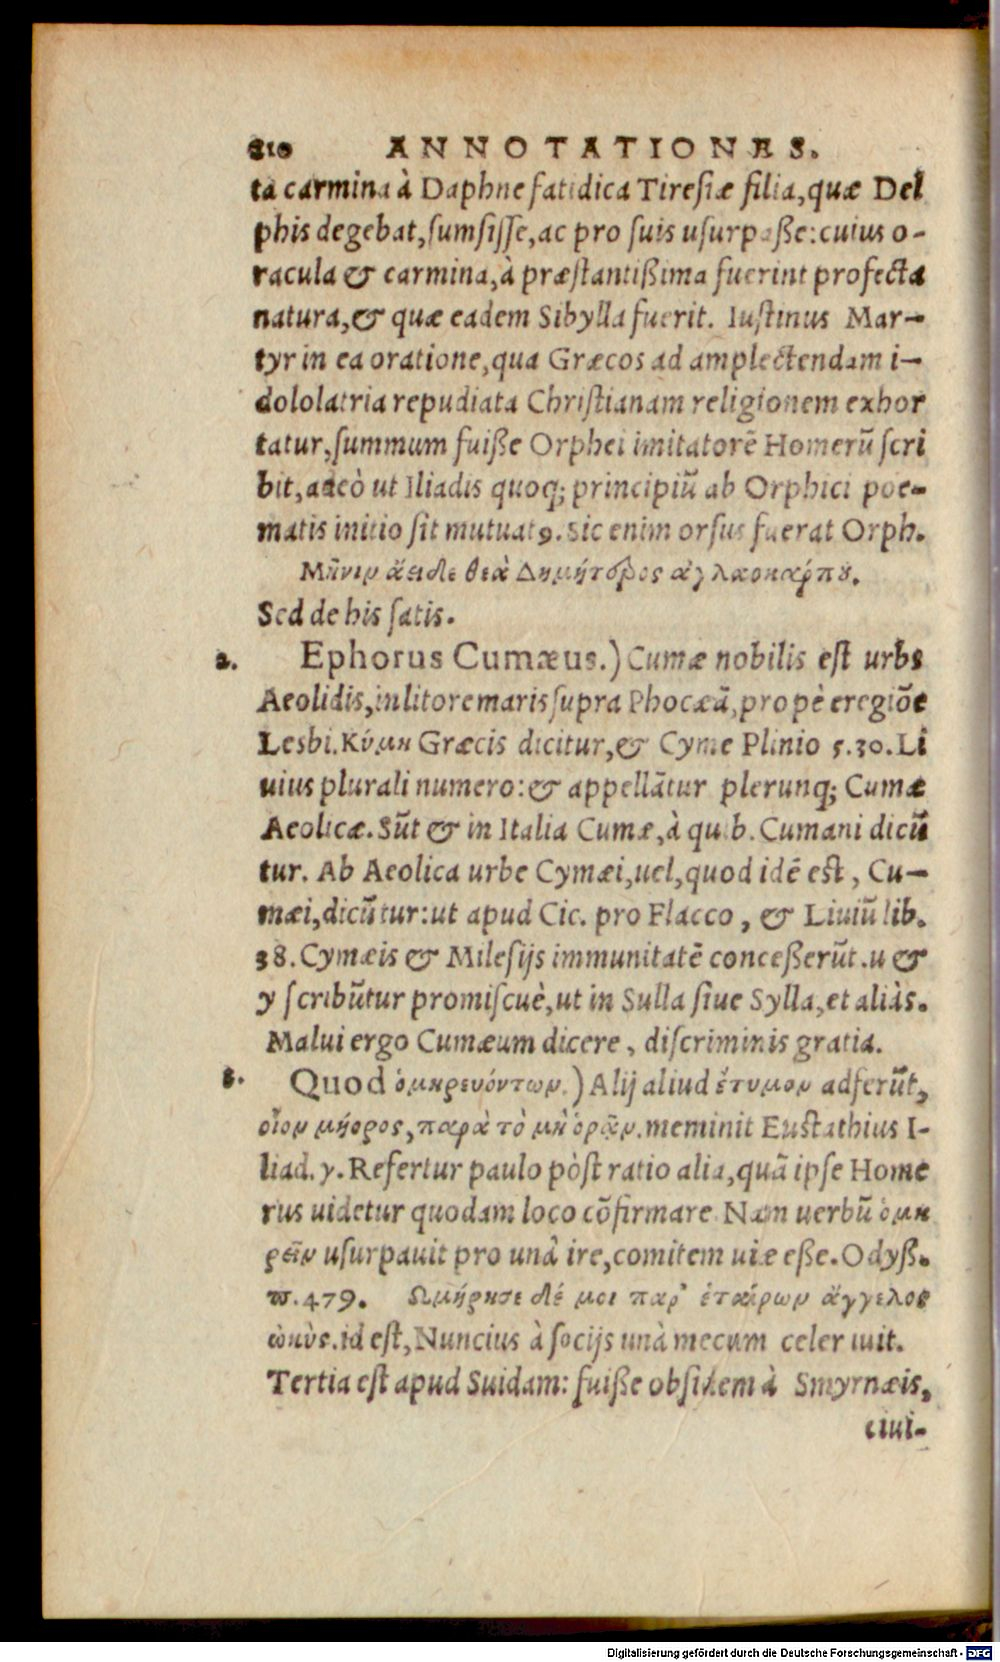 210 ANNOTATIONES.
ta carmina à Daphne fatidica Tiresiæ filia,quæ Del
phis degebat,sumsisse,ac pro suis usurpaße:cuius o-
racula & carmina,à præstantißima fuerint profecta
natura,& quæ eadem Sibylla fuerit. Iustinus Mar-
tyr in ea oratione,qua Græcos ad amplectendam i-
dololatria repudiata Christianam religionem exhor
tatur,summum fuiße Orphei imitatorē Homerũ scri
bit,adeò ut Iliadis quoq; principiũ ab Orphici poe-
matis initio sit mutuatꝰ. Sic enim orsus fuerat Orph.
Μῆνιν ἄειδε θεὰ Δημήτερος ἀγλαοκάρπȣ.
Sed de his satis.
2. Ephorus Cumæus.) Cumæ nobilis est urbs
Aeolidis,in litore maris supra Phocæã,propè eregiõe
Lesbi.Κύμη Græcis dicitur,& Cyme Plinio 5.30.Li
uius plurali numero:& appellãtur plerunq; Cumæ
Aeolicæ.Sũt & in Italia Cumæ,à quib. Cumani dicũ
tur. Ab Aeolica urbe Cymæi,uel,quod idē est, Cu-
mæi,dicũtur:ut apud Cic. pro Flacco, & Liuiũ lib.
38.Cymæis & Milesijs immunitatē conceßerũt.u &
y scribũtur promiscuè,ut in Sulla siue Sylla,et aliàs.
Malui ergo Cumæum dicere, discriminis gratia.
8. Quod ὁμηρευόντων.) Alij aliud ἔτυμον adferũt,
οἷον μήορος,παρὰ τὸ μὴ ὁρᾷν.meminit Eustathius I-
liad.γ.Refertur paulo pòst ratio alia,quã ipse Home
rus uidetur quodam loco cõfirmare. Nam uerbũ ὁμη
ρεῖν usurpauit pro unà ire,comitem uiæ eße.Odyß.
ϖ.479. Ωμήρησε δέ μοι παρ' ἑταίρων ἄγγελος
ὠκὺς.id est,Nuncius à socijs unà mecum celer iuit.
Tertia est apud Suidam: fuiße obsidem à Smyrnæis,
ciui-
Digitalisierung gefördert durch die Deutsche Forschungsgemeinschaft - DFG